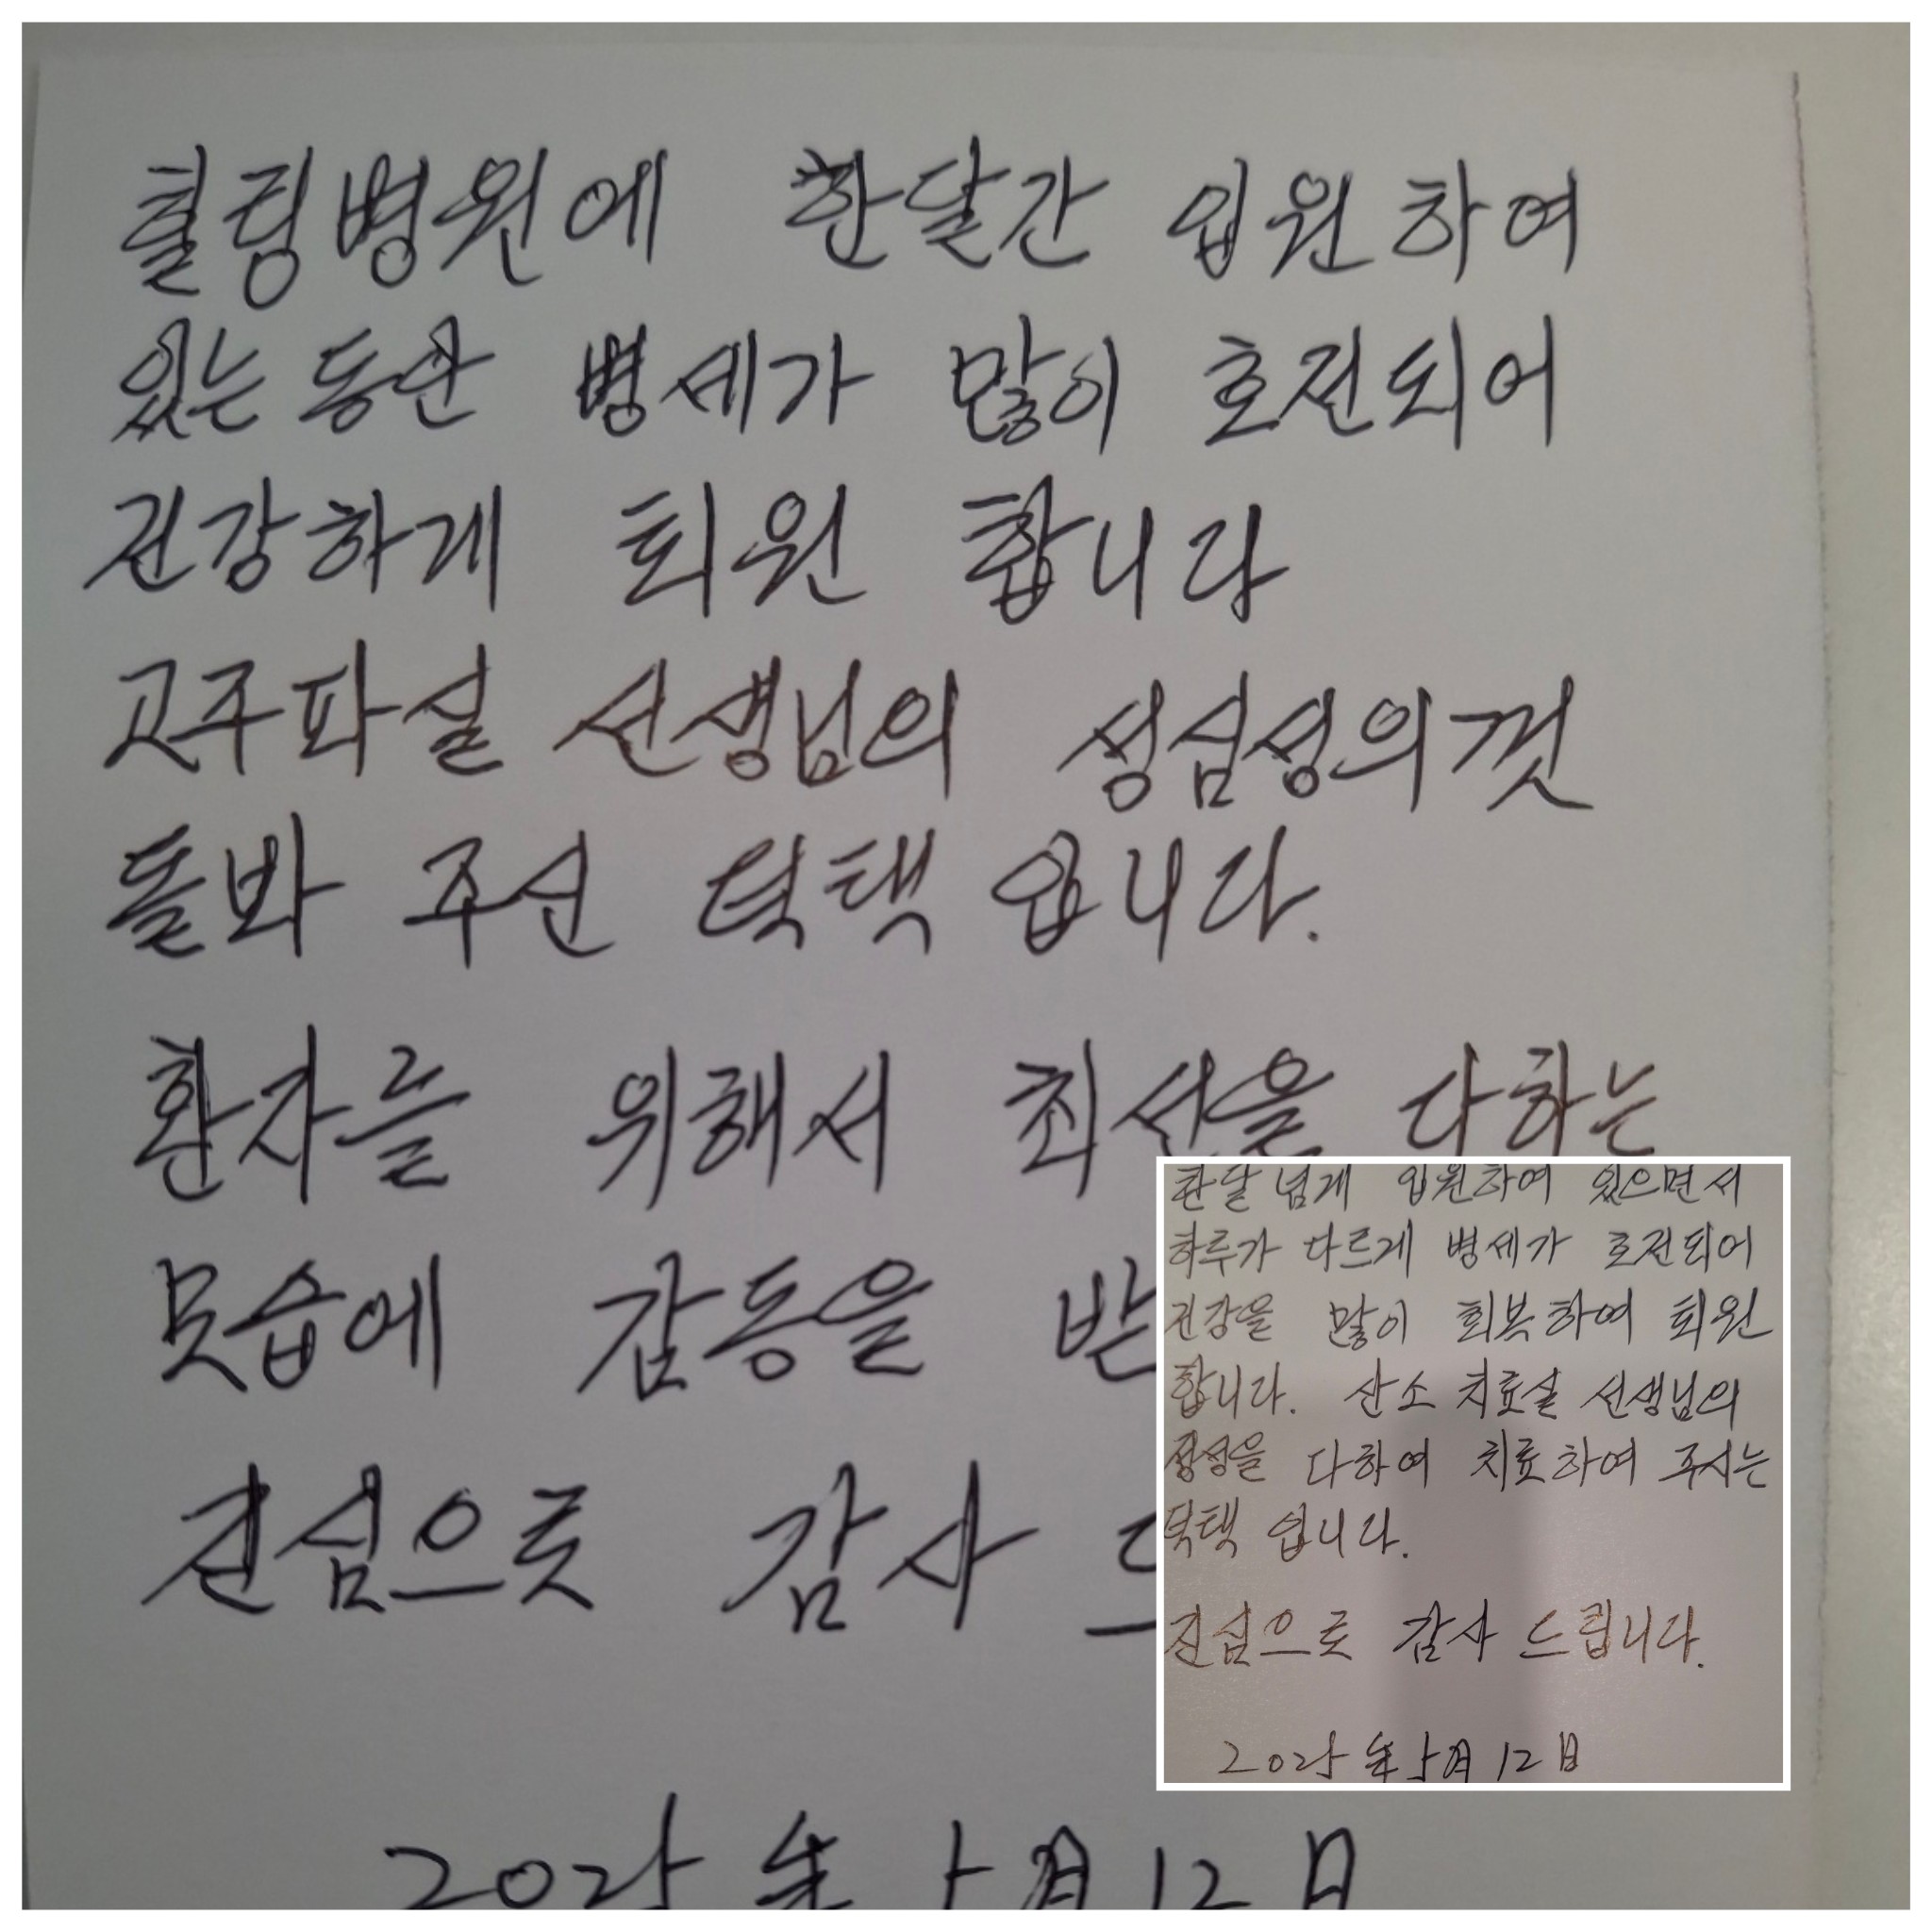 힐링병원에 한달간 입원하여
있는동안 병세가 많이 호전되어
건강하게 퇴원 합니다
고주파실 선생님의 성심성의껏
돌봐 주신 덕택 입니다.
환자를 위해서 최선을 다하는
모습에 감동을 받
진심으로 감사
2025年 5月 12日
한달 넘게 입원하여 있으면서
하루가 다르게 병세가 호전되어
건강을 많이 회복하여 퇴원
합니다. 산소 치료실 선생님의
정성을 다하여 치료하여 주시는
덕택 입니다.
진심으로 감사 드립니다.
2025年 5月 12日